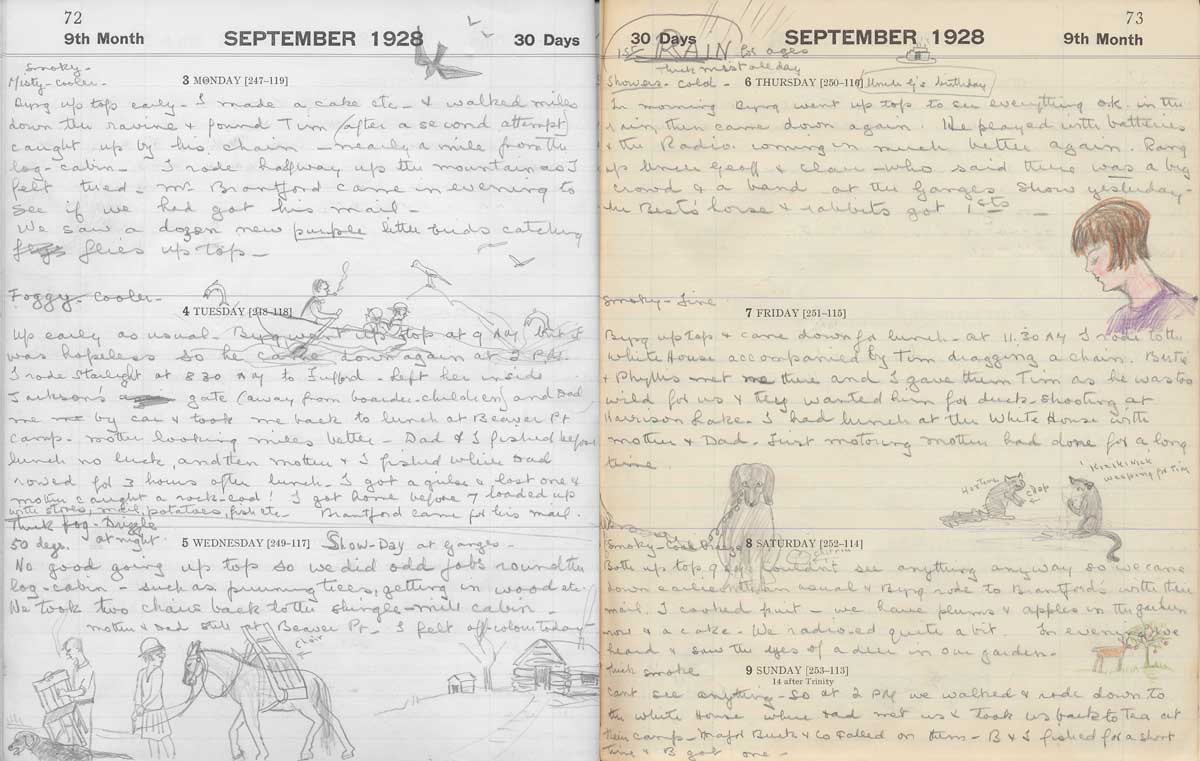 72
9th Month SEPTEMBER 1928 30 Days
Smoky
Misty-cooler-
3 MONDAY [247–119]
Byng up top early - I made a cake etc - & walked miles
down the ravine & found Tim (after a second attempt)
caught up by his chain - nearly a mile from the
log-cabin - I rode halfway up the mountain as I
felt tired - Mr Brantford came in evening to
see if we had got his mail -
We saw a dozen new purple little birds catching
flies up top -
Foggy - cooler -
4 TUESDAY [248–118]
Up early as usual. Byng went up top at 9 AM but it
was hopeless so he came down again at 2 PM.
I rode Starlight at 8 30 AM to Fulford - left her inside
Jackson's gate (away from boarder-children) and Dad
me by car & took me back to lunch at Beaver Pt
Camp - mother looking miles better - Dad & I fished before
lunch no luck, and then mother & I fished while Dad
rowed for 3 hours after lunch - I got a & lost one &
mother caught a rock-cod! I got home before 7 loaded up
with stores, mail, potatoes, fish etc - Brantford came for his mail.
Thick fog - Drizzle
at night.
50 degs.
5 WEDNESDAY [249–117] Show-Day at Ganges -
No good going up top so we did odd jobs round the
log-cabin - such as pruning trees, getting in wood etc
We took two chairs back to the shingle-mill cabin -
mother & Dad still at Beaver Pt - I felt off-colour today -
CHAIR
73
30 Days SEPTEMBER 1928 9th Month
1st RAIN for ages
thick mist all day
Showers - cold -
6 THURSDAY [250–116] Uncle G's birthday
In morning Byng went up top to see everything o.k. in the
rain, then came down again. He played with batteries
& the Radio coming in much better again. Rang
up Uncle Geoff & Clair - who said there was a big
crowd & a band at the Ganges Show yesterday -
the Bests' horse & rabbits got 1sts -
Smoky - Fine
7 FRIDAY [251–115]
Byng up top & came down for lunch - at 11.30 AM I rode to the
White House accompanied by Tim dragging a chain.
& Phyllis met me there and I gave them Tim as he was too
wild for us & they wanted him for duck-shooting at
Harrison Lake. I had lunch at the White House with
mother & Dad - First motoring mother had done for a long
time.
KINIKINICK
weeping for Tim
Smoky-
8 SATURDAY [252–114]
Both up top, 9 couldn't see anything anyway so we came
down earlier than usual & Byng rode to Brantford's with their
mail. I cooked fruit - we have plums & apples in the garden
now & a cake - We radio-ed quite a bit. In evening we
heard & saw the eyes of a deer in our garden -
thick smoke
9 SUNDAY [253–113]
14 after Trinity
cant see anything - so at 2 PM we walked & rode down to
the White House where Dad met us & took us back to tea at
their camp - Major Buck & Co called on them - B & I fished for a short
time & B got one -